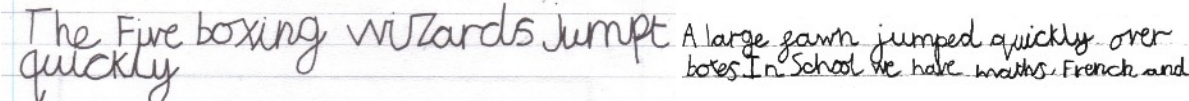 The Five boxing wizards Jumpt
quickly
A large fawn jumped quickly over
boxes In School we have maths, French and